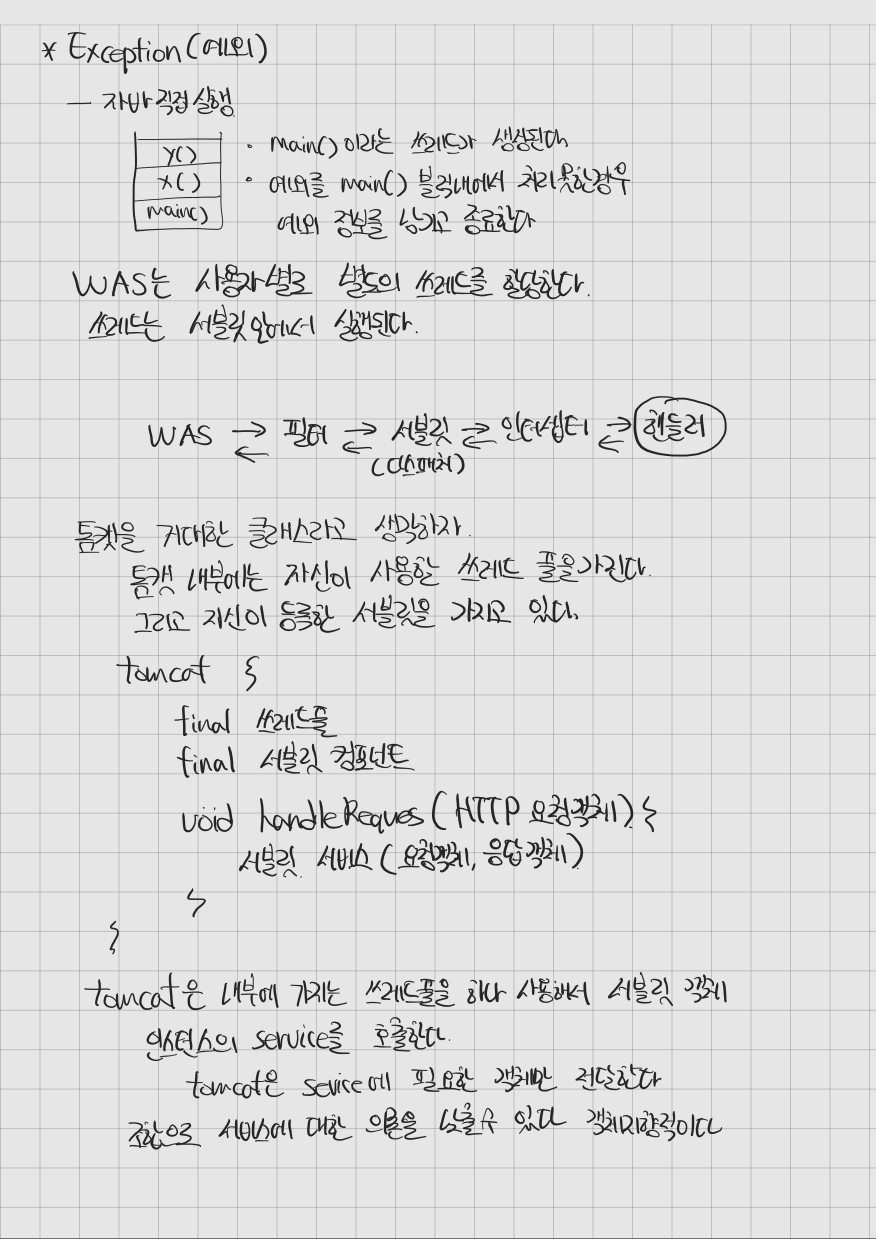 * Exception(예외)
— 자바 직접 실행
y()
x()
main()
· main()이라는 쓰레드가 생성된다
· 예외를 main() 블럭내에서 처리 못한경우
예외 정보를 남기고 종료한다
WAS는 사용자별로 별도의 쓰레드를 할당한다.
쓰레드는 서블릿 안에서 실행된다.
WAS ⇄ 필터 ⇄ 서블릿 ⇄ 인터셉터 ⇄ 핸들러
(디스패처)
톰캣을 거대한 클래스라고 생각하자.
톰캣 내부에는 자신이 사용할 쓰레드 풀을 가진다.
그리고 자신이 등록한 서블릿을 가지고 있다.
tomcat {
final 쓰레드풀
final 서블릿 컴포넌트
void handleReques(HTTP 요청객체) {
서블릿 서비스(요청객체, 응답객체)
}
}
tomcat은 내부에 가지는 쓰레드풀을 하나 사용해서 서블릿 객체
인스턴스의 service를 호출한다.
tomcat은 sevice에 필요한 객체만 전달한다
조합으로 서비스에 대한 의존을 낮출수 있다 객체지향적이다